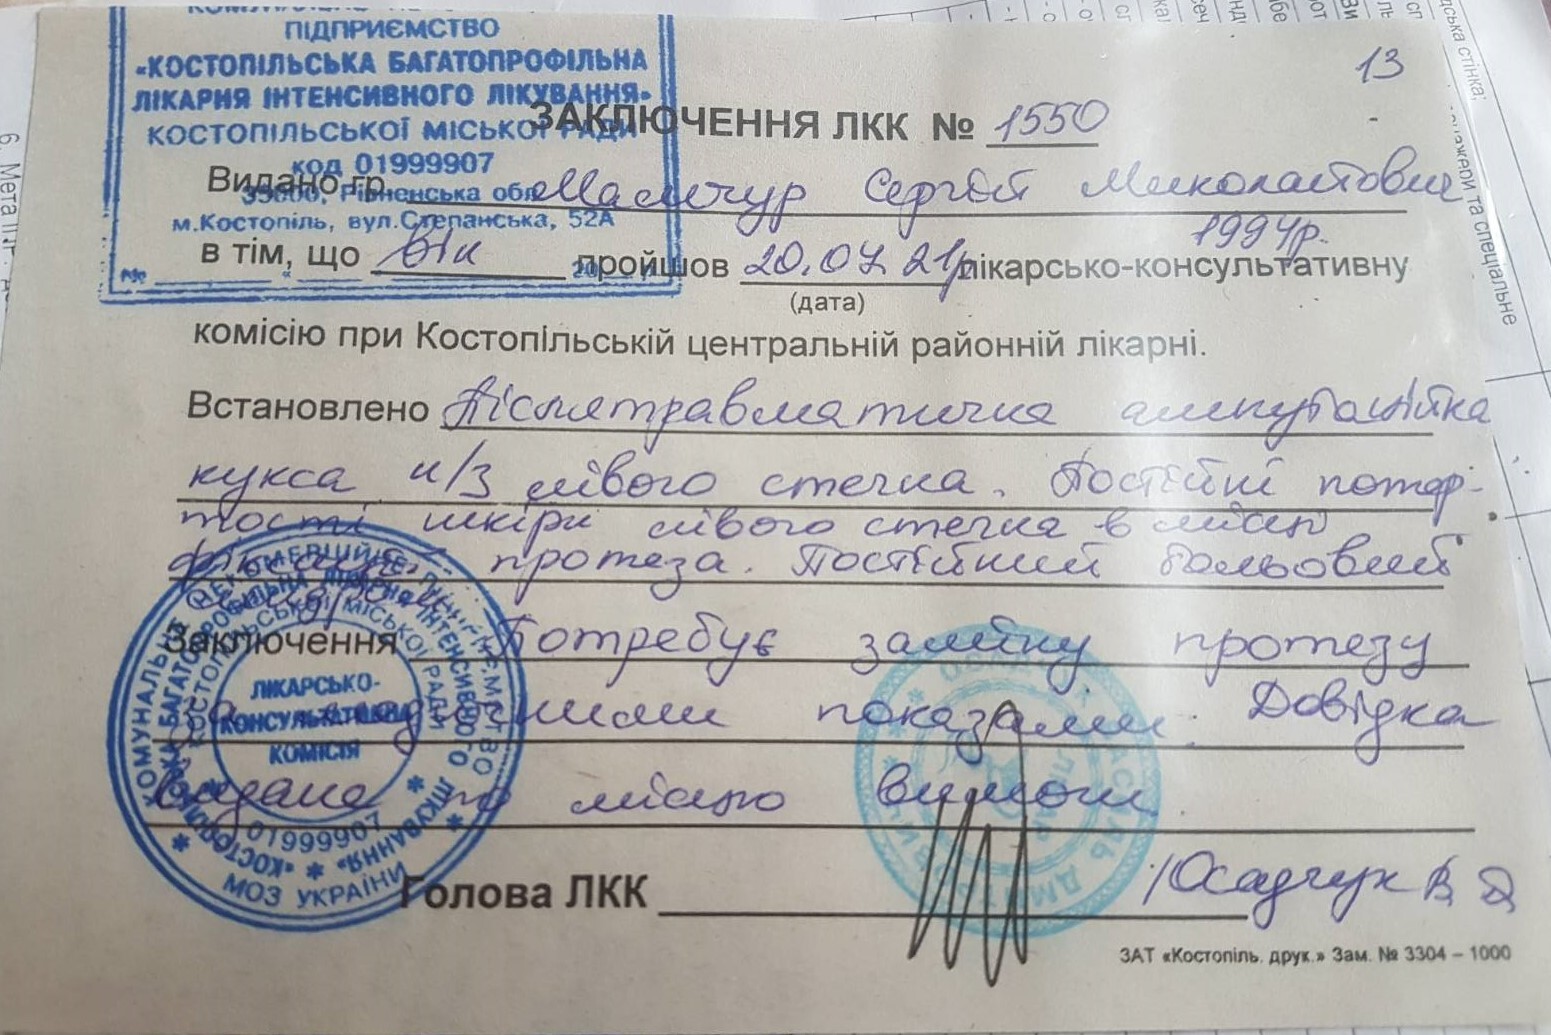 ПІДПРИЄМСТВО
«КОСТОПІЛЬСЬКА БАГАТОПРОФІЛЬНА
ЛІКАРНЯ ІНТЕНСИВНОГО ЛІКУВАННЯ»
КОСТОПІЛЬСЬКОЇ МІСЬКОЇ РАДИ
код 01999907
35000, Рівненська обл.
м.Костопіль, вул.Степанська, 52А
13
ЗАКЛЮЧЕННЯ ЛКК № 1550
Видано гр. Мамчур Сергій Миколайович
1994р.
в тім, що він пройшов 20.07 21р лікарсько-консультативну
(дата)
комісію при Костопільській центральній районній лікарні.
Встановлено Післятравматична ампутаційна
кукса н/3 лівого стегна. Постійні потер-
тості шкіри лівого стегна в місці
протеза. Постійний больовий
синдром
Заключення Потребує заміну протезу
за медичними показами. Довідка
видана по місцю вимоги
Голова ЛКК /Осадчук В Д
ЛІКАРСЬКО-
КОНСУЛЬТАТИВНА
КОМІСІЯ
01999907
МОЗ УКРАЇНИ
ЗАТ «Костопіль. друк.» Зам. № 3304 – 1000